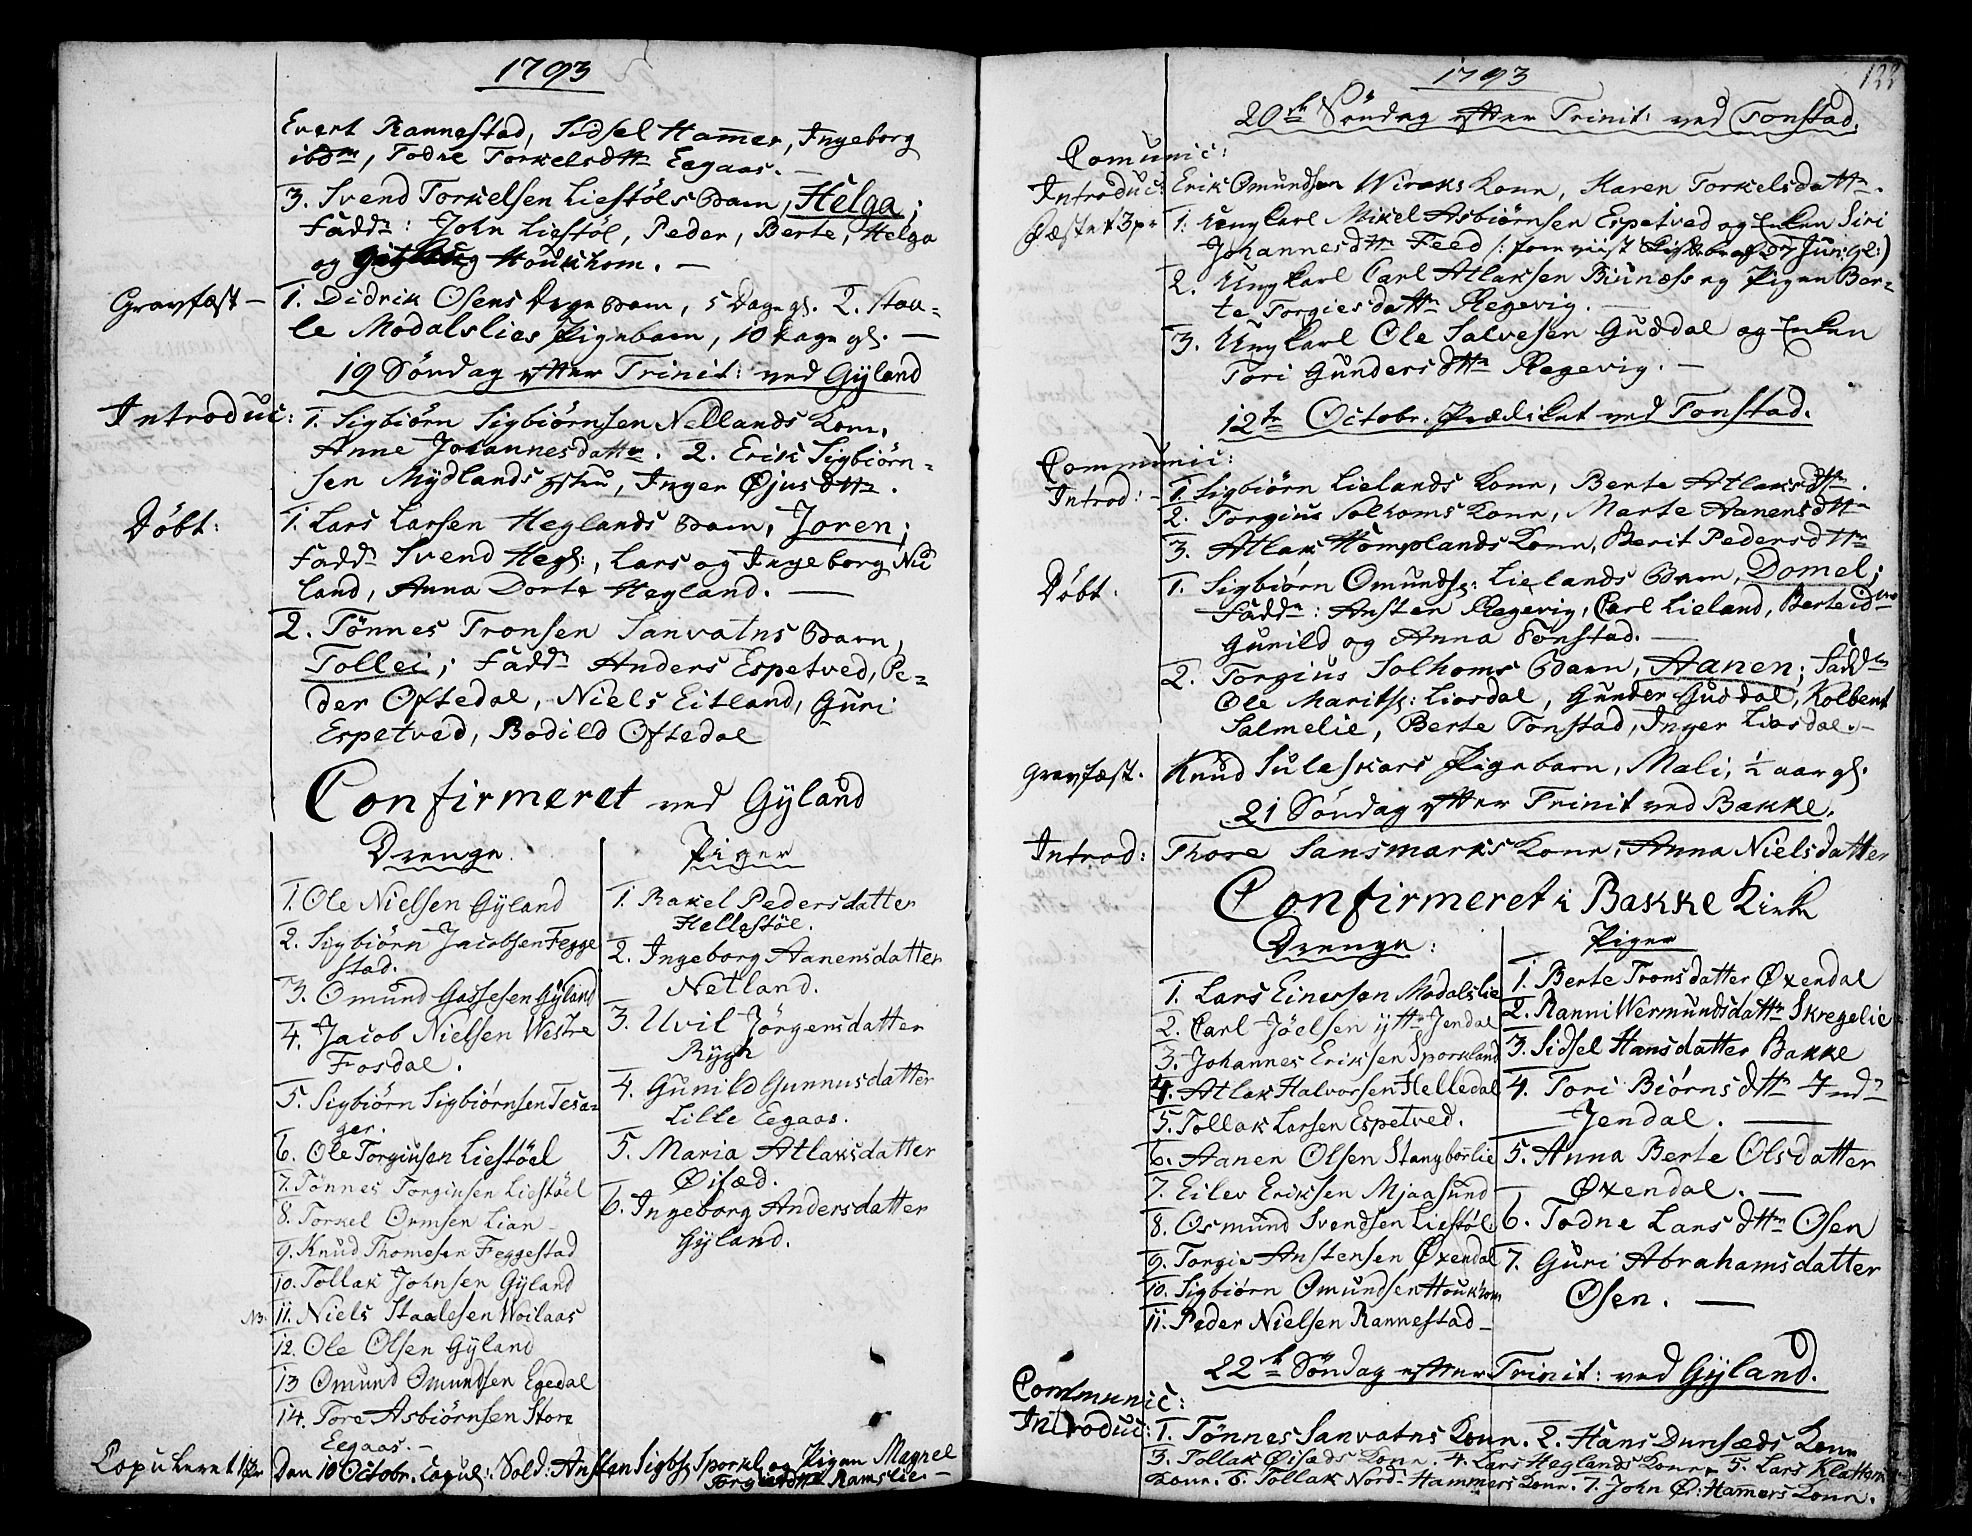 1793
Evert Rannestad, Sidsel Hamer, Ingeborg
ibdm, Todne Torkelsdttr Eegaas. —
3. Svend Torkelsen Liestöls Barn, Helga;
Faddr: John Liestöl, Peder, Berte, Helga
og Houkhom. —
Gravfæst — 1. Didrik Osens Drengebarn, 5 Dage gl. 2. Staa-
le Modalslies Pigebarn, 10 Dage gl. —
19 Söndag efter Trinit: ved Gyland
Introduc: 1. Sigbiörn Sigbiörnsen Nellands Kone,
Anne Johannesdattr. 2. Erik Sigbiörn-
sen Mydlands hstru, Inger Øjusdttr.
Döbt: 1. Lars Larsen Heglands Barn, Joren;
Faddr Svend Hegl:, Lars og Ingeborg Nu
land, Anna Dorte Hegland. —
2. Tönnes Tronsen Sanvatns Barn,
Tollei; Faddr Anders Espetved, Pe-
der Oftedal, Niels Eitland, Guri
Espetved, Bodild Oftedal
Confirmeret ved Gyland
Drenge.
1. Ole Nielsen Gyland
2. Sigbiörn Jacobsen Fegge
stad.
3. Omund Gassesen Gyland
4. Jacob Nielsen Westre
Fosdal.
5. Sigbiörn Sigbiörnsen Tesa-
ger.
6. Ole Torgiusen Liestöel
7. Tönnes Torgiusen Liestöel
8. Torkel Ormsen Lian —
9. Knud Thomesen Feggestad
10. Tollak Johnsen Gyland
NB. 11. Niels Staalesen Woilaas
12. Ole Olsen Gyland
13 Omund Omundsen Egedal
14. Tore Asbiörnsen Store
Eegaas. —
Piger
1. Rakel Pedersdatter
Hellestöl.
2. Ingeborg Aanensdatter
Netland.
3. Uvil Jörgensdatter
Rygh
4. Gunild Gunnusdatter
Lille Eegaas.
5. Maria Atlaksdatter
Øisæd.
6. Ingeborg Andersdatter
Gyland.
Copuleret 1 pr Den 10 Octobr. Copul: Sold: Ansten Sigbs: Sporkl og Pigen Magnel
Torgiusdttr Ramslie —
1793
122
20de Söndag efter Trinit: ved Tonstad.
Comunic:
Introduc: Erik Omundsen Wiraks Kone, Karen Torkelsdattr.
Fæstet 3 pr 1. Ungkarl Mikel Asbiörnsen Espetved og Enken Siri
Johannesdttr Feed /: som viist Skiftebref 27 Jun: gl:)
2. Ungkarl Carl Atlaksen Biunæss og Pigen Ber-
te Torgiesdattr Regevig. —
3. Ungkarl Ole Salvesen Guddal og Enken
Tori Gundersdttr Regevig. —
12te Octobr. Prædiket ved Tonstad.
Communic:
Introd: — 1. Sigbiörn Lielands Kone, Berte Atlaksdttr.
2. Torgius Solhoms Kone, Marte Aanensdttr
3. Atlak Homplands Kone, Berit Pedersdttr
Döbt. 1. Sigbiörn Omunds: Lielands Barn, Domel;
Faddr: Ansten Regevig, Carl Lieland, Berte idm
Gunild og Anna Tonstad. —
2. Torgius Solhoms Barn, Aanen; Faddr
Ole Marits: Liosdal, Gunder Guddal, Kolbent
Salmelie, Berte Tonstad, Inger Liosdal. —
Gravfæst. Knud Suleskars Pigebarn, Mali, ½ aar gl.
21 Söndag efter Trinit ved Bakke.
Introd: Thore Sansmarks Kone, Anna Nielsdatter
Confirmeret i Bakke Kirke
Drenge:
1. Lars Einersen Modalslie
2. Carl Jöelsen yttr Jendal
3. Johannes Eriksen Sporkland
4. Atlak Halvorsen Helledal
5. Tollak Larsen Espetved.
6. Aanen Olsen Stangborlie
7. Eilev Eriksen Mjaasund
8. Osmund Svendsen Liestöl
9. Torgie Anstensen Øxendal
10. Sigbiörn Omundsen Houkhom
11. Peder Nielsen Rannestad —
Piger
1. Berte Tronsdatter Øxendal
2. Ranni Wermundsdattr Skregelie
3. Sidsel Hansdatter Bakke
4. Tori Biörnsdttr Indr
Jendal. —
5. Anna Berte Olsdatter
Øxendal. —
6. Todne Larsdttr Osen
7. Guri Abrahamsdatter
Osen. —
22de Söndag efter Trinit: ved Gyland.
Communic:
Introduc: 1. Tönnes Sanvatns Kone. 2. Hans Dunsæds Kone
3. Tollak Øisæds Kone. 4. Lars Heglands Kone. 5. Lars Klattem
Kone. 6. Tollak Nord-Hammers Kone. 7. John Ø: Hamers Kone.